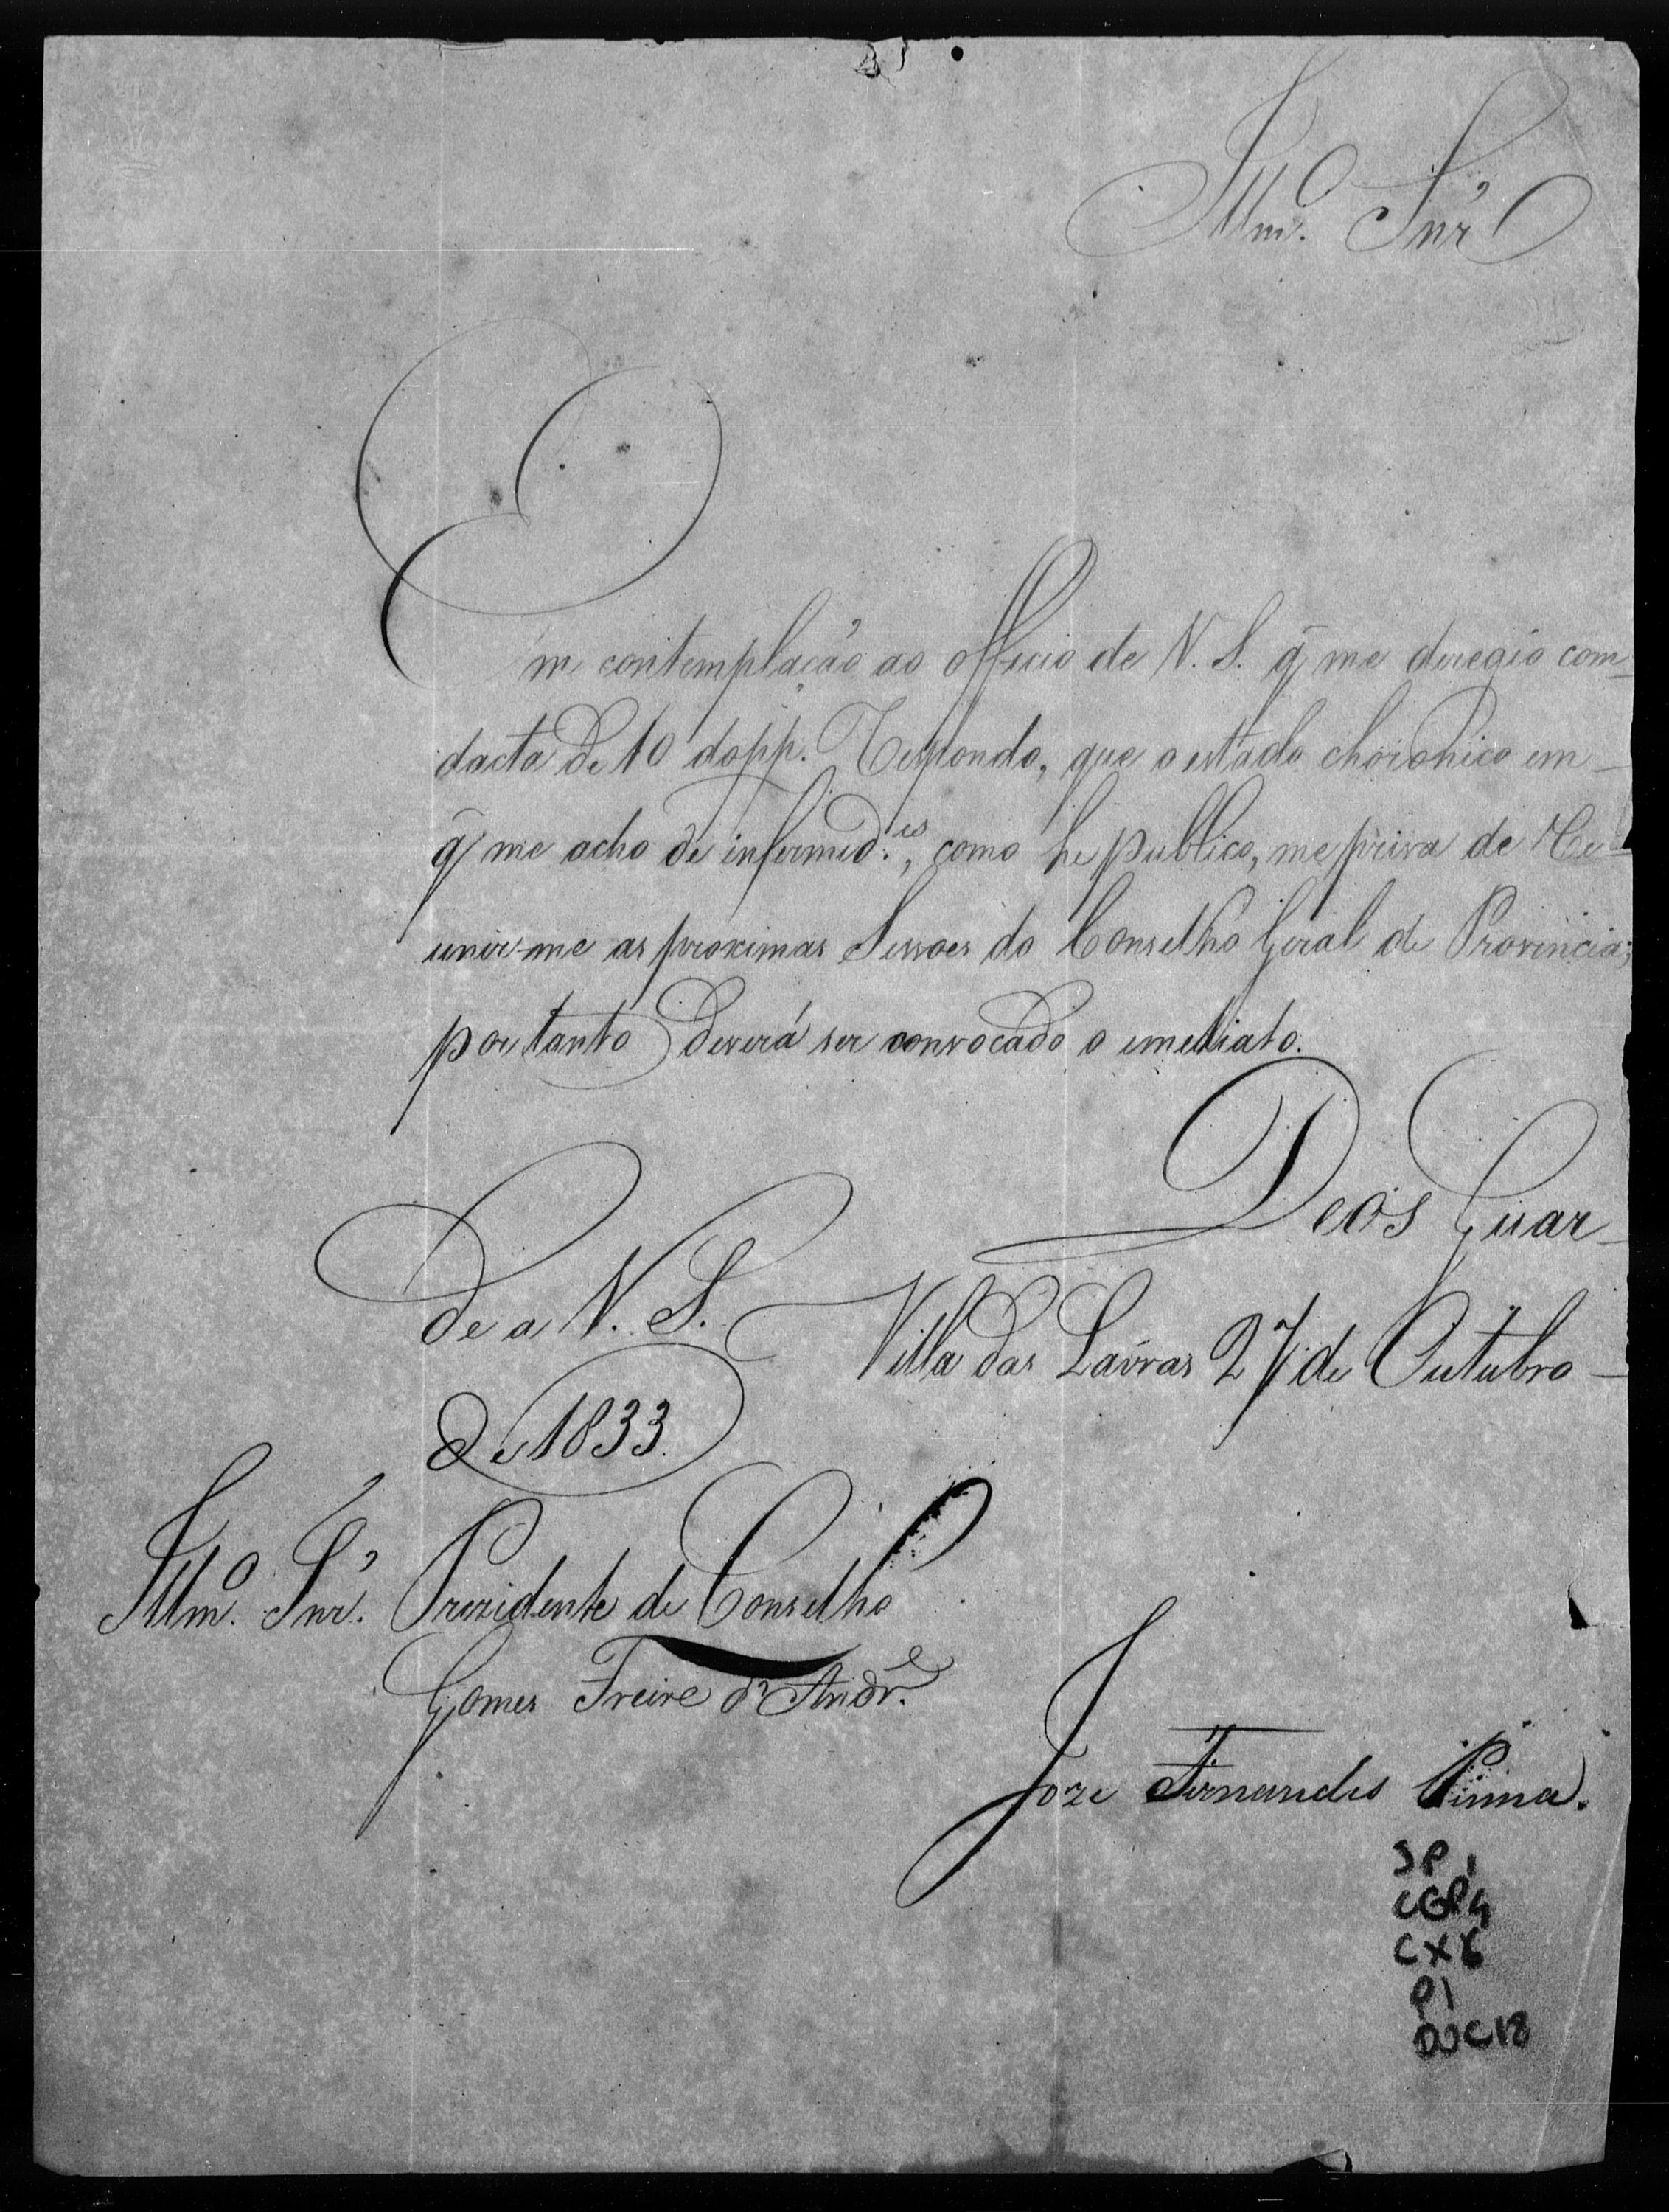 Illmo. Snr.
Em contemplação ao officio de V. S. q̃ me deregio com
dacta de 10 do pp. Respondo, que o estado choronico em
q̃ me acho de infermid.es, como he publico, me priva de Re-
unir-me as proximas Sessoes do Conselho Geral de Provincia;
portanto deverá ser convocado o imediato.
Deos Guar-
de a V. S. Villa das Lavras 27 de Outubro
de 1833.
Illmo. Snr. Prezidente do Conselho
Gomes Freire d'Andr.e
Joze Fernandes Penna.
SP 1
CGP4
CX6
P1
DOC18